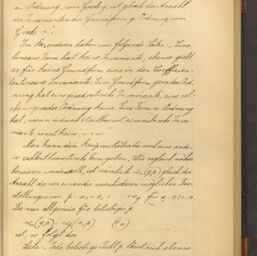 n. Ordnung, vom Grade g, ist gleich der Anzahl
der Invarianten der Grundform g. Ordnung vom
Grade n.
Im Besonderen haben wir folgende Sätze: Eine
lineare Form hat keine Invariante, ebenso giebt
es für keine Grundform eine in den Coefficien-
ten lineare Invariante. Eine Grundform gerader Ord-
nung hat eine quadratische Invariante, eine sol-
che ungerader Ordnung keine. Eine Form n. Ordnung
hat, wenn n durch 4 teilbar ist, eine cubische Inva-
riante, sonst keine, u. s. w.
Man kann dem Reciprocitätssatze noch eine ande-
re zahlentheoretische Form geben. Wie sogleich näher
bewiesen werden soll, ist nämlich (g,p) gleich der
Anzahl der von einander verschiedenen möglichen Dar-
stellungen von p = 
Da nun allgemein für beliebige p:
(g,p) = (n,p)
ist, so folgt der
Satz: Jede beliebige Zahl p lässt sich ebenso